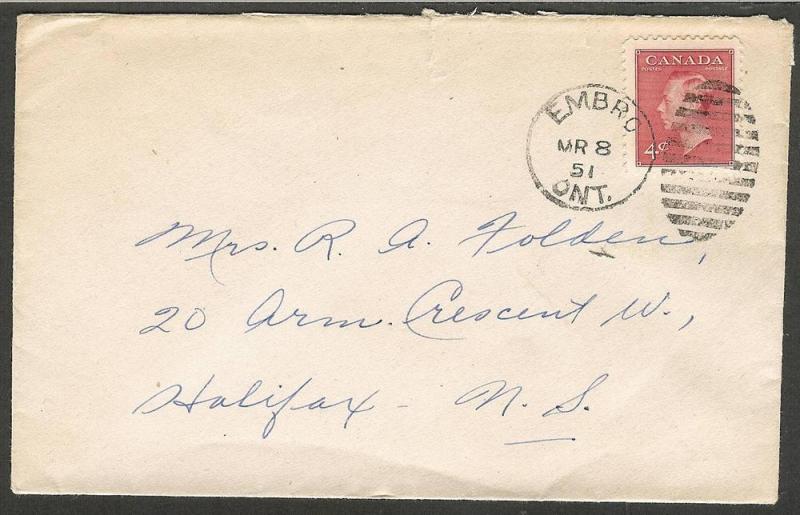 CANADA
POSTES POSTAGE
4¢
EMBRO
MR 8
51
ONT.
Mrs. R. A. Folden,
20 Arm. Crescent W.,
Halifax - N. S.